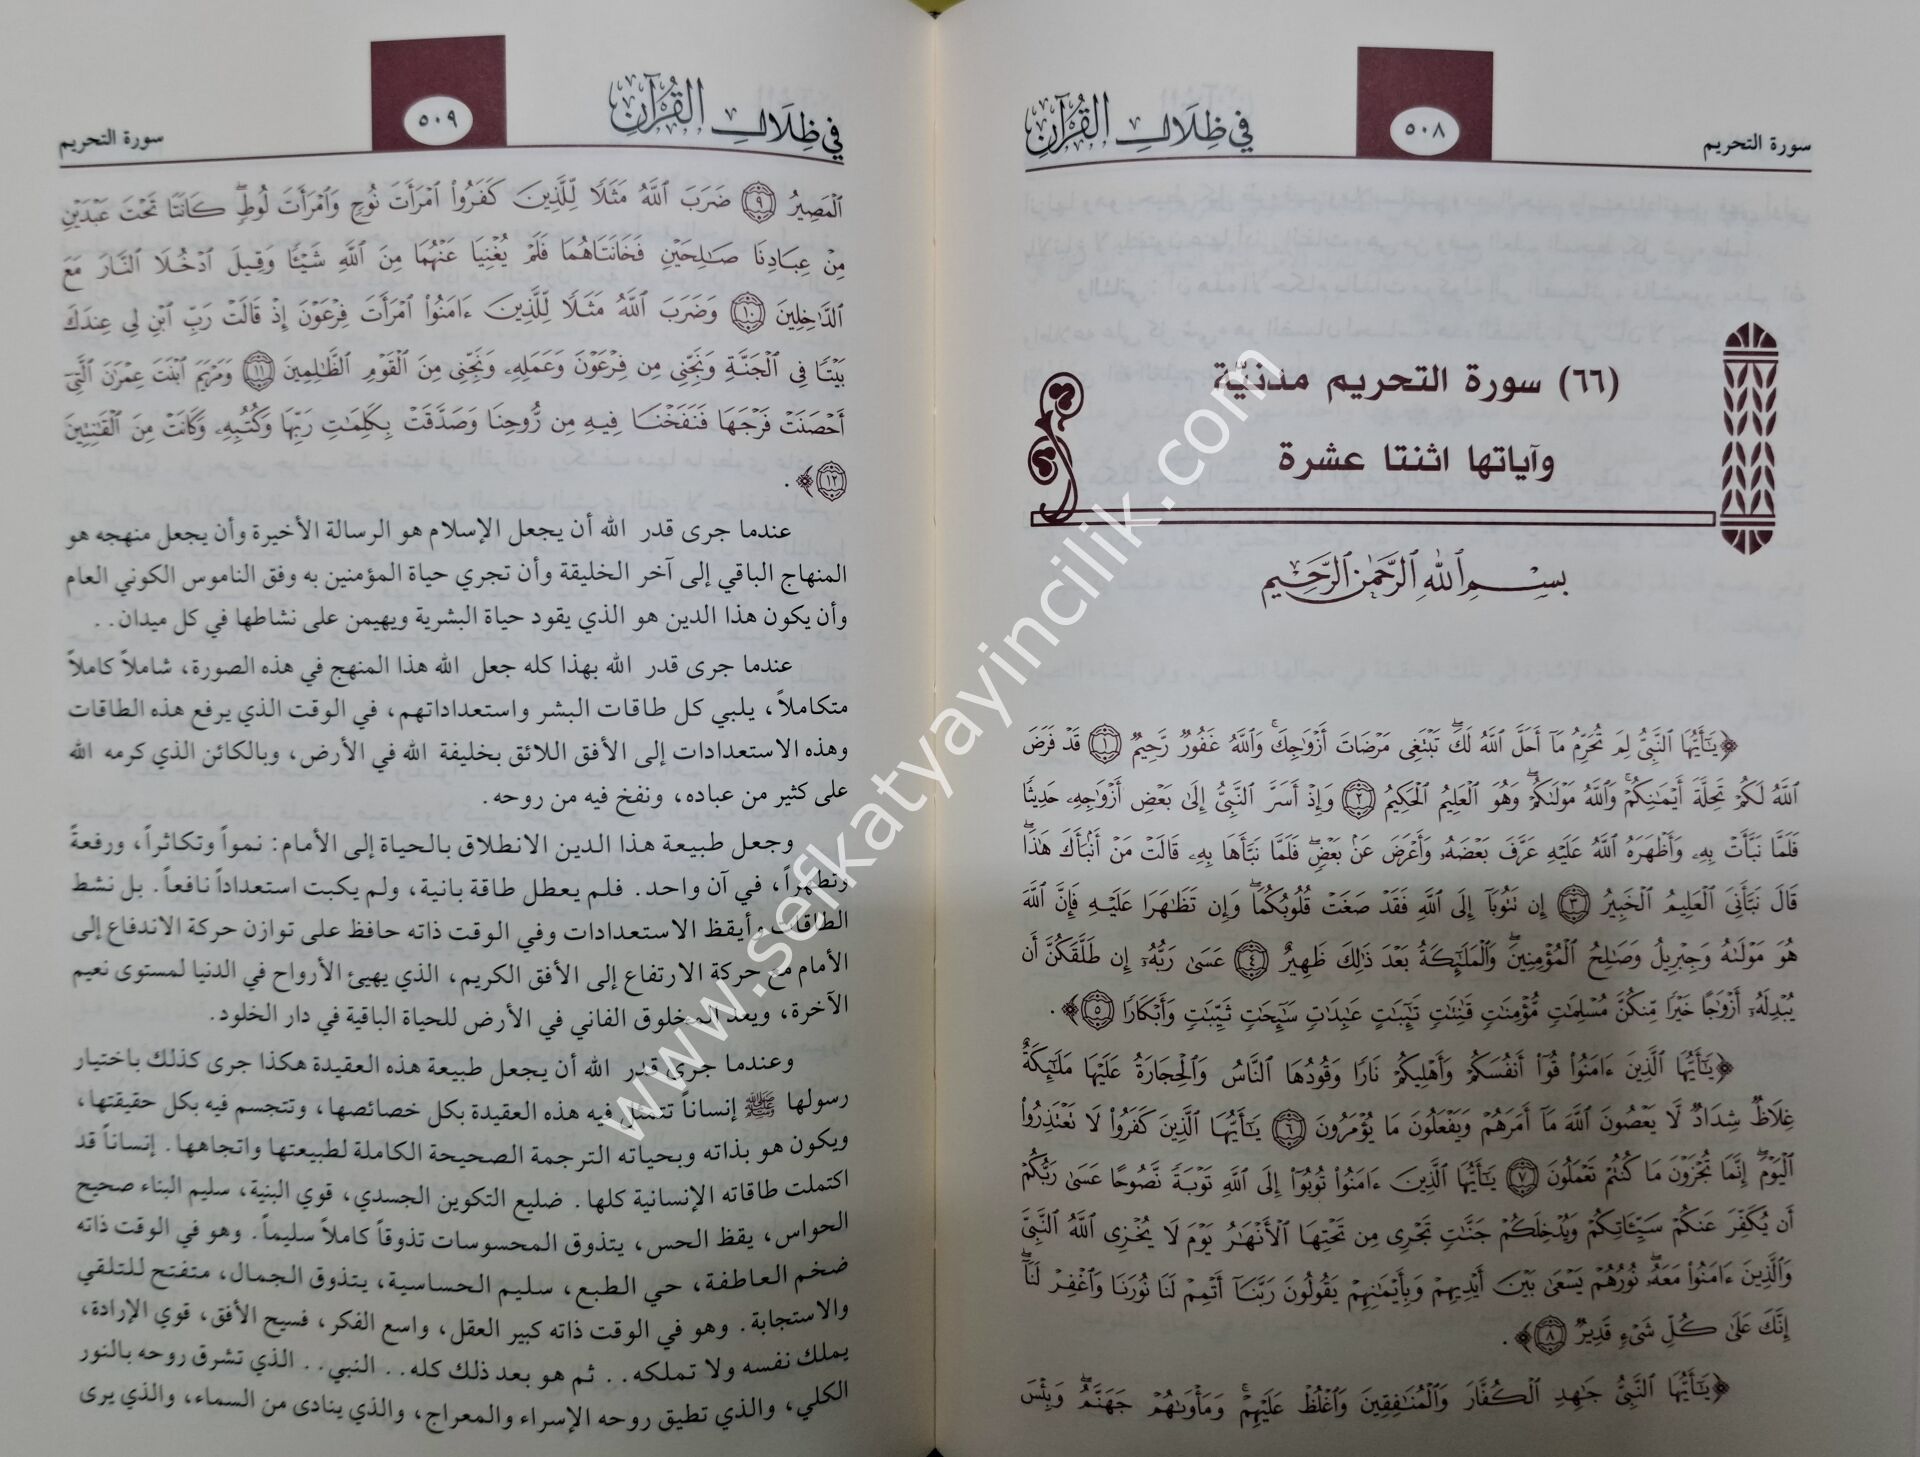 سورة التحريم
٥٠٨
في ظلال القرآن
(٦٦) سورة التحريم مدنيّة
وآياتها اثنتا عشرة
بِسْمِ ٱللَّهِ ٱلرَّحْمَٰنِ ٱلرَّحِيمِ
﴿يَٰٓأَيُّهَا ٱلنَّبِىُّ لِمَ تُحَرِّمُ مَآ أَحَلَّ ٱللَّهُ لَكَۖ تَبْتَغِى مَرْضَاتَ أَزْوَٰجِكَۚ وَٱللَّهُ غَفُورٌ رَّحِيمٌ ١ قَدْ فَرَضَ
ٱللَّهُ لَكُمْ تَحِلَّةَ أَيْمَٰنِكُمْۚ وَٱللَّهُ مَوْلَىٰكُمْۖ وَهُوَ ٱلْعَلِيمُ ٱلْحَكِيمُ ٢ وَإِذْ أَسَرَّ ٱلنَّبِىُّ إِلَىٰ بَعْضِ أَزْوَٰجِهِۦ حَدِيثًا
فَلَمَّا نَبَّأَتْ بِهِۦ وَأَظْهَرَهُ ٱللَّهُ عَلَيْهِ عَرَّفَ بَعْضَهُۥ وَأَعْرَضَ عَنۢ بَعْضٍۖ فَلَمَّا نَبَّأَهَا بِهِۦ قَالَتْ مَنْ أَنۢبَأَكَ هَٰذَاۖ
قَالَ نَبَّأَنِىَ ٱلْعَلِيمُ ٱلْخَبِيرُ ٣ إِن تَتُوبَآ إِلَى ٱللَّهِ فَقَدْ صَغَتْ قُلُوبُكُمَاۖ وَإِن تَظَٰهَرَا عَلَيْهِ فَإِنَّ ٱللَّهَ
هُوَ مَوْلَىٰهُ وَجِبْرِيلُ وَصَٰلِحُ ٱلْمُؤْمِنِينَۖ وَٱلْمَلَٰٓئِكَةُ بَعْدَ ذَٰلِكَ ظَهِيرٌ ٤ عَسَىٰ رَبُّهُۥٓ إِن طَلَّقَكُنَّ أَن
يُبْدِلَهُۥٓ أَزْوَٰجًا خَيْرًا مِّنكُنَّ مُسْلِمَٰتٍ مُّؤْمِنَٰتٍ قَٰنِتَٰتٍ تَٰٓئِبَٰتٍ عَٰبِدَٰتٍ سَٰٓئِحَٰتٍ ثَيِّبَٰتٍ وَأَبْكَارًا ٥﴾ .
﴿يَٰٓأَيُّهَا ٱلَّذِينَ ءَامَنُوا۟ قُوٓا۟ أَنفُسَكُمْ وَأَهْلِيكُمْ نَارًا وَقُودُهَا ٱلنَّاسُ وَٱلْحِجَارَةُ عَلَيْهَا مَلَٰٓئِكَةٌ
غِلَاظٌ شِدَادٌ لَّا يَعْصُونَ ٱللَّهَ مَآ أَمَرَهُمْ وَيَفْعَلُونَ مَا يُؤْمَرُونَ ٦ يَٰٓأَيُّهَا ٱلَّذِينَ كَفَرُوا۟ لَا تَعْتَذِرُوا۟
ٱلْيَوْمَۖ إِنَّمَا تُجْزَوْنَ مَا كُنتُمْ تَعْمَلُونَ ٧ يَٰٓأَيُّهَا ٱلَّذِينَ ءَامَنُوا۟ تُوبُوٓا۟ إِلَى ٱللَّهِ تَوْبَةً نَّصُوحًا عَسَىٰ رَبُّكُمْ
أَن يُكَفِّرَ عَنكُمْ سَيِّـَٔاتِكُمْ وَيُدْخِلَكُمْ جَنَّٰتٍ تَجْرِى مِن تَحْتِهَا ٱلْأَنْهَٰرُ يَوْمَ لَا يُخْزِى ٱللَّهُ ٱلنَّبِىَّ
وَٱلَّذِينَ ءَامَنُوا۟ مَعَهُۥۖ نُورُهُمْ يَسْعَىٰ بَيْنَ أَيْدِيهِمْ وَبِأَيْمَٰنِهِمْ يَقُولُونَ رَبَّنَآ أَتْمِمْ لَنَا نُورَنَا وَٱغْفِرْ لَنَآۖ
إِنَّكَ عَلَىٰ كُلِّ شَىْءٍ قَدِيرٌ ٨﴾ .
﴿يَٰٓأَيُّهَا ٱلنَّبِىُّ جَٰهِدِ ٱلْكُفَّارَ وَٱلْمُنَٰفِقِينَ وَٱغْلُظْ عَلَيْهِمْۚ وَمَأْوَىٰهُمْ جَهَنَّمُۖ وَبِئْسَ
في ظلال القرآن
٥٠٩
سورة التحريم
ٱلْمَصِيرُ ٩ ضَرَبَ ٱللَّهُ مَثَلًا لِّلَّذِينَ كَفَرُوا۟ ٱمْرَأَتَ نُوحٍ وَٱمْرَأَتَ لُوطٍۖ كَانَتَا تَحْتَ عَبْدَيْنِ
مِنْ عِبَادِنَا صَٰلِحَيْنِ فَخَانَتَاهُمَا فَلَمْ يُغْنِيَا عَنْهُمَا مِنَ ٱللَّهِ شَيْـًٔا وَقِيلَ ٱدْخُلَا ٱلنَّارَ مَعَ
ٱلدَّٰخِلِينَ ١٠ وَضَرَبَ ٱللَّهُ مَثَلًا لِّلَّذِينَ ءَامَنُوا۟ ٱمْرَأَتَ فِرْعَوْنَ إِذْ قَالَتْ رَبِّ ٱبْنِ لِى عِندَكَ
بَيْتًا فِى ٱلْجَنَّةِ وَنَجِّنِى مِن فِرْعَوْنَ وَعَمَلِهِۦ وَنَجِّنِى مِنَ ٱلْقَوْمِ ٱلظَّٰلِمِينَ ١١ وَمَرْيَمَ ٱبْنَتَ عِمْرَٰنَ ٱلَّتِىٓ
أَحْصَنَتْ فَرْجَهَا فَنَفَخْنَا فِيهِ مِن رُّوحِنَا وَصَدَّقَتْ بِكَلِمَٰتِ رَبِّهَا وَكُتُبِهِۦ وَكَانَتْ مِنَ ٱلْقَٰنِتِينَ
١٢﴾ .
عندما جرى قدر الله أن يجعل الإسلام هو الرسالة الأخيرة وأن يجعل منهجه هو
المنهاج الباقي إلى آخر الخليقة وأن تجري حياة المؤمنين به وفق الناموس الكوني العام
وأن يكون هذا الدين هو الذي يقود حياة البشرية ويهيمن على نشاطها في كل ميدان. .
عندما جرى قدر الله بهذا كله جعل الله هذا المنهج في هذه الصورة، شاملاً كاملاً
متكاملاً، يلبي كل طاقات البشر واستعداداتهم، في الوقت الذي يرفع هذه الطاقات
وهذه الاستعدادات إلى الأفق اللائق بخليفة الله في الأرض، وبالكائن الذي كرمه الله
على كثير من عباده، ونفخ فيه من روحه.
وجعل طبيعة هذا الدين الانطلاق بالحياة إلى الأمام: نمواً وتكاثراً، ورفعةً
وتطهراً، في آن واحد. فلم يعطل طاقة بانية، ولم يكبت استعداداً نافعاً. بل نشط
الطاقات وأيقظ الاستعدادات وفي الوقت ذاته حافظ على توازن حركة الاندفاع إلى
الأمام مع حركة الارتفاع إلى الأفق الكريم، الذي يهيئ الأرواح في الدنيا لمستوى نعيم
الآخرة، ويعد المخلوق الفاني في الأرض للحياة الباقية في دار الخلود.
وعندما جرى قدر الله أن يجعل طبيعة هذه العقيدة هكذا جرى كذلك باختيار
رسولها ﷺ إنساناً تتمثل فيه هذه العقيدة بكل خصائصها، وتتجسم فيه بكل حقيقتها،
ويكون هو بذاته وبحياته الترجمة الصحيحة الكاملة لطبيعتها واتجاهها. إنساناً قد
اكتملت طاقاته الإنسانية كلها. ضليع التكوين الجسدي، قوي البنية، سليم البناء صحيح
الحواس، يقظ الحس، يتذوق المحسوسات تذوقاً كاملاً سليماً. وهو في الوقت ذاته
ضخم العاطفة، حي الطبع، سليم الحساسية، يتذوق الجمال، متفتح للتلقي
والاستجابة. وهو في الوقت ذاته كبير العقل، واسع الفكر، فسيح الأفق، قوي الإرادة،
يملك نفسه ولا تملكه. . ثم هو بعد ذلك كله. . النبي. . الذي تشرق روحه بالنور
الكلي، والذي تطيق روحه الإسراء والمعراج، والذي ينادى من السماء، والذي يرى
www.sefkatyayincilik.com